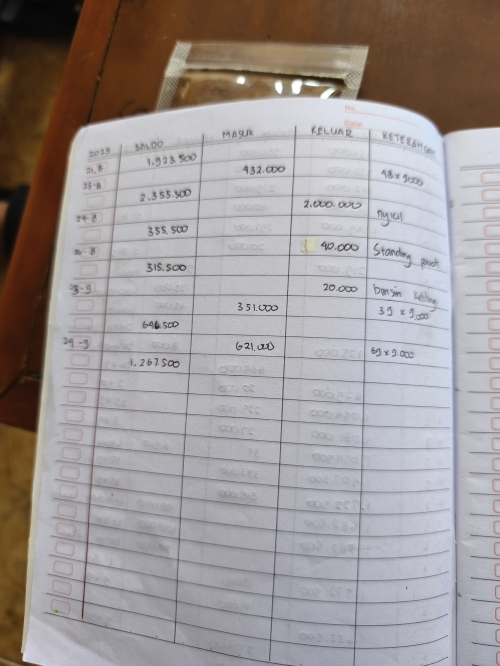 No.
Date:
2023 SALDO MASUK KELUAR KETERANGAN
21.8 1.923.500
23-8 432.000 48 x 9000
2.355.500
24-8 2.000.000
355.500
-8 40.000 Standing pouch
315.500
-9 20.000 bensin
351.000 39 x 9.000
646.500
24-9 621.000 69 x 9.000
1.267.500